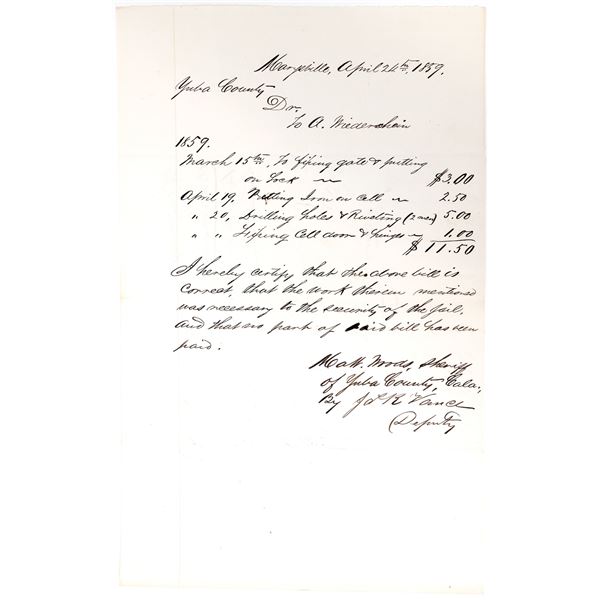 Marysville, April 24th, 1859.
Yuba County
Dr.
To A. Niederchain
1859.
March 15th, To fixing gate & putting
on Lock " $3.00
April 19. Putting Iron on Cell " 2.50
" 20, Drilling holes & Riveting (2 men) 5.00
" " Fixing Cell door & hinges " 1.00
$11.50
I hereby certify that the above bill is
correct, that the work therein mentioned
was necessary to the security of the jail,
and that no part of said bill has been
paid.
Matt. Woods, Sheriff
of Yuba County, Cala.,
By J. R. Vance
Deputy